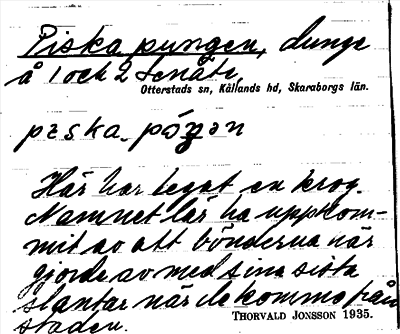 Piska pungen, dunge
å 1 och 2
Otterstads sn, Kållands hd, Skaraborgs län.
pɪska pɷŋən
Här har legat en krog.
Namnet lär ha uppkom-
mit av att bönderna här
gjorde av med sina sista
slantar när de kommo från
staden.
THORVALD JONSSON 1935.